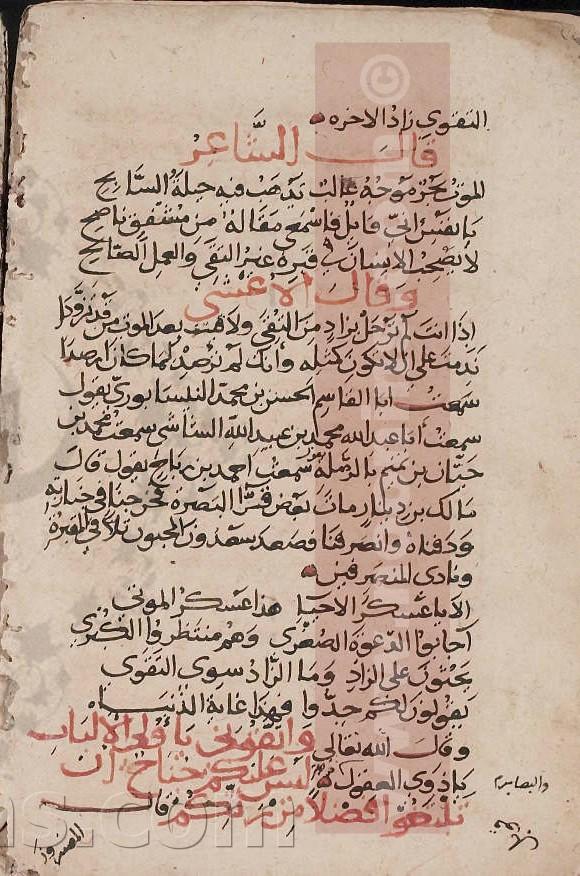 التقوى زاد الاخره
قال الشاعر
الموت بحر موجه غالب تذهب فيه حيلة السابح
يا نفس اني قايل فاسمعي مقالة من مشفق ناصح
لا يصحب الانسان في قبره غير التقى والعمل الصالح
وقال الاعشى
اذا انت لم ترحل بزاد من التقى ولاقيت بعد الموت من قد تزودا
ندمت على ان لا تكون كمثله وانك لم ترصد لما كان ارصدا
سمعت ابا القاسم الحسن بن محمد النيسابوري يقول
سمعت أبا عبد الله محمد بن عبد الله الشاشي سمعت محمد بن
بن تميم بالرملة سمعت احمد بن يقول قال
مالك بن دينار مات بعض قرا البصرة فخرجنا في جنازته
ودفناه وانصرفنا فصعد سعدون المجنون تلا في المقبرة
ونادى المنصرفين
الا يا عسكر الاحيا هذا عسكر الموتى
اجابوا الدعوة الصغرى وهم منتظروا الكبرى
يحثون على الزاد وما الزاد سوى التقوى
يقولون لكم جدوا فهذا غاية الدنيا
وقال الله تعالى واتقوني يا أولي الألباب
يا ذوي العقول ليس عليكم جناح ان
تبتغوا فضلا من ربكم قال
المفسرون